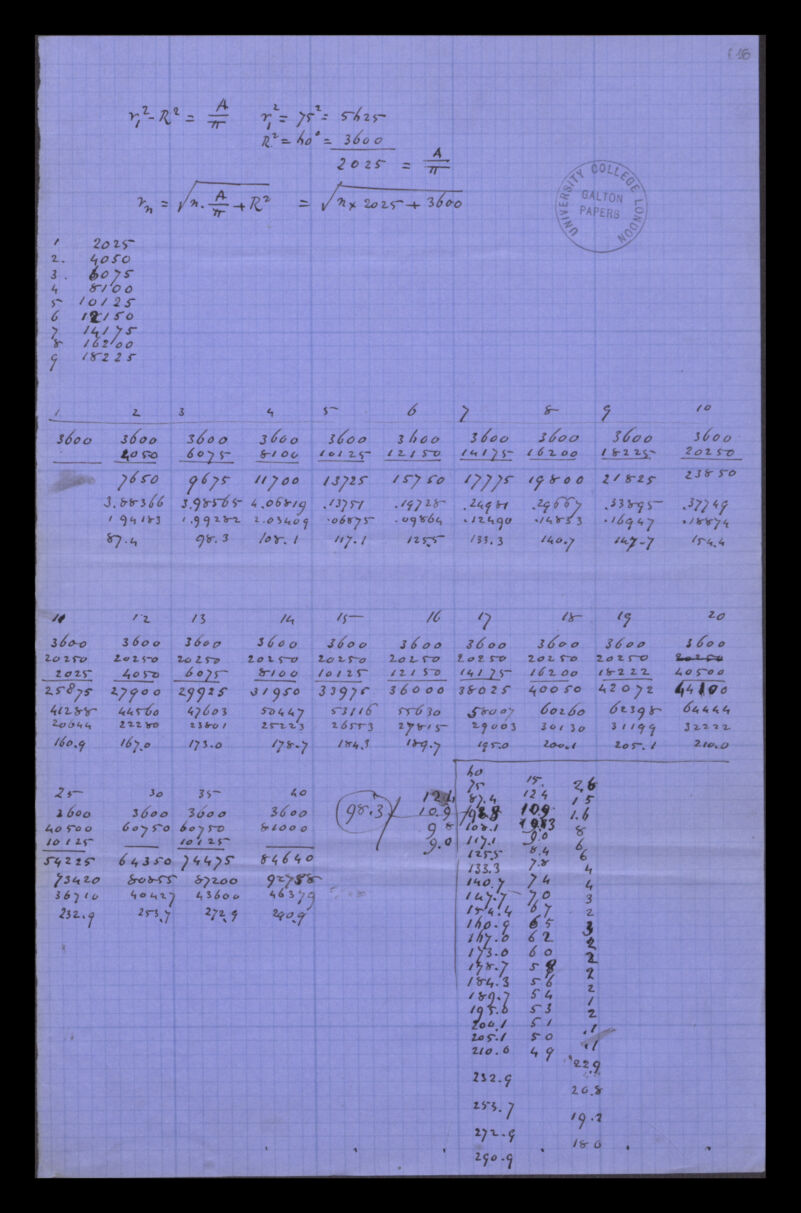 r₁² - R² = A/π   r₁² = 75² = 5625
R² = 60² = 3600
2025 = A/π
rₙ = √n. A/π + R²   = √n × 2025 + 3600
UNIVERSITY COLLEGE LONDON
GALTON
PAPERS
1 2025
2. 4050
3. 6075
4 8100
5 10125
6 12150
7 14175
8 16200
9 18225
1 2 3 4 5 6 7 8 9 10
3600 3600 3600 3600 3600 3600 3600 3600 3600 3600
4050 6075 8100 10125 12150 14175 16200 18225 20250
7650 9675 11700 13725 15750 17775 19800 21825 23850
3.88366 3.98565 4.06819 .13751 .19728 .24981 .29667 .33895 .37749
194183 1.99282 2.03409 .06875 .09864 .12490 .14833 .16947 .18874
87.4 98.3 108.1 117.1 125.5 133.3 140.7 147.7 154.4
11 12 13 14 15 16 17 18 19 20
3600 3600 3600 3600 3600 3600 3600 3600 3600 3600
20250 20250 20250 20250 20250 20250 20250 20250 20250 20250
2025 4050 6075 8100 10125 12150 14175 16200 18222 40500
25875 27900 29925 31950 33975 36000 38025 40050 42072 44100
41288 44560 47603 50447 53116 55630 58007 60260 62398 64444
20644 22280 23801 25223 26553 27815 29003 30130 31199 32222
160.9 167.0 173.0 178.7 184.3 189.7 195.0 200.1 205.1 210.0
25 30 35 40
3600 3600 3600 3600
40500 60750 60750 81000
10125 10125
54225 64350 74475 84640
73420 80855 87200 92758
36710 40427 43600 46379
232.9 253.7 272.9 290.9
98.3
124
10.9
98
9.0
60
75 15. 26
87.4 124 15
98.3 109 1.6
108.1 983 8
117.1 9.0 6
125.5 8.4 6
133.3 7.8 4
140.7 74 4
147.7 70 3
154.4 67 2
160.9 65 3
167.0 62 2
173.0 60 2
178.7 58 2
184.3 56 2
189.7 54 1
195.0 53 2
200.1 51 .1
205.1 50 .1
210.0 49
229
232.9
20.8
253.7
19.2
272.9
180
290.9